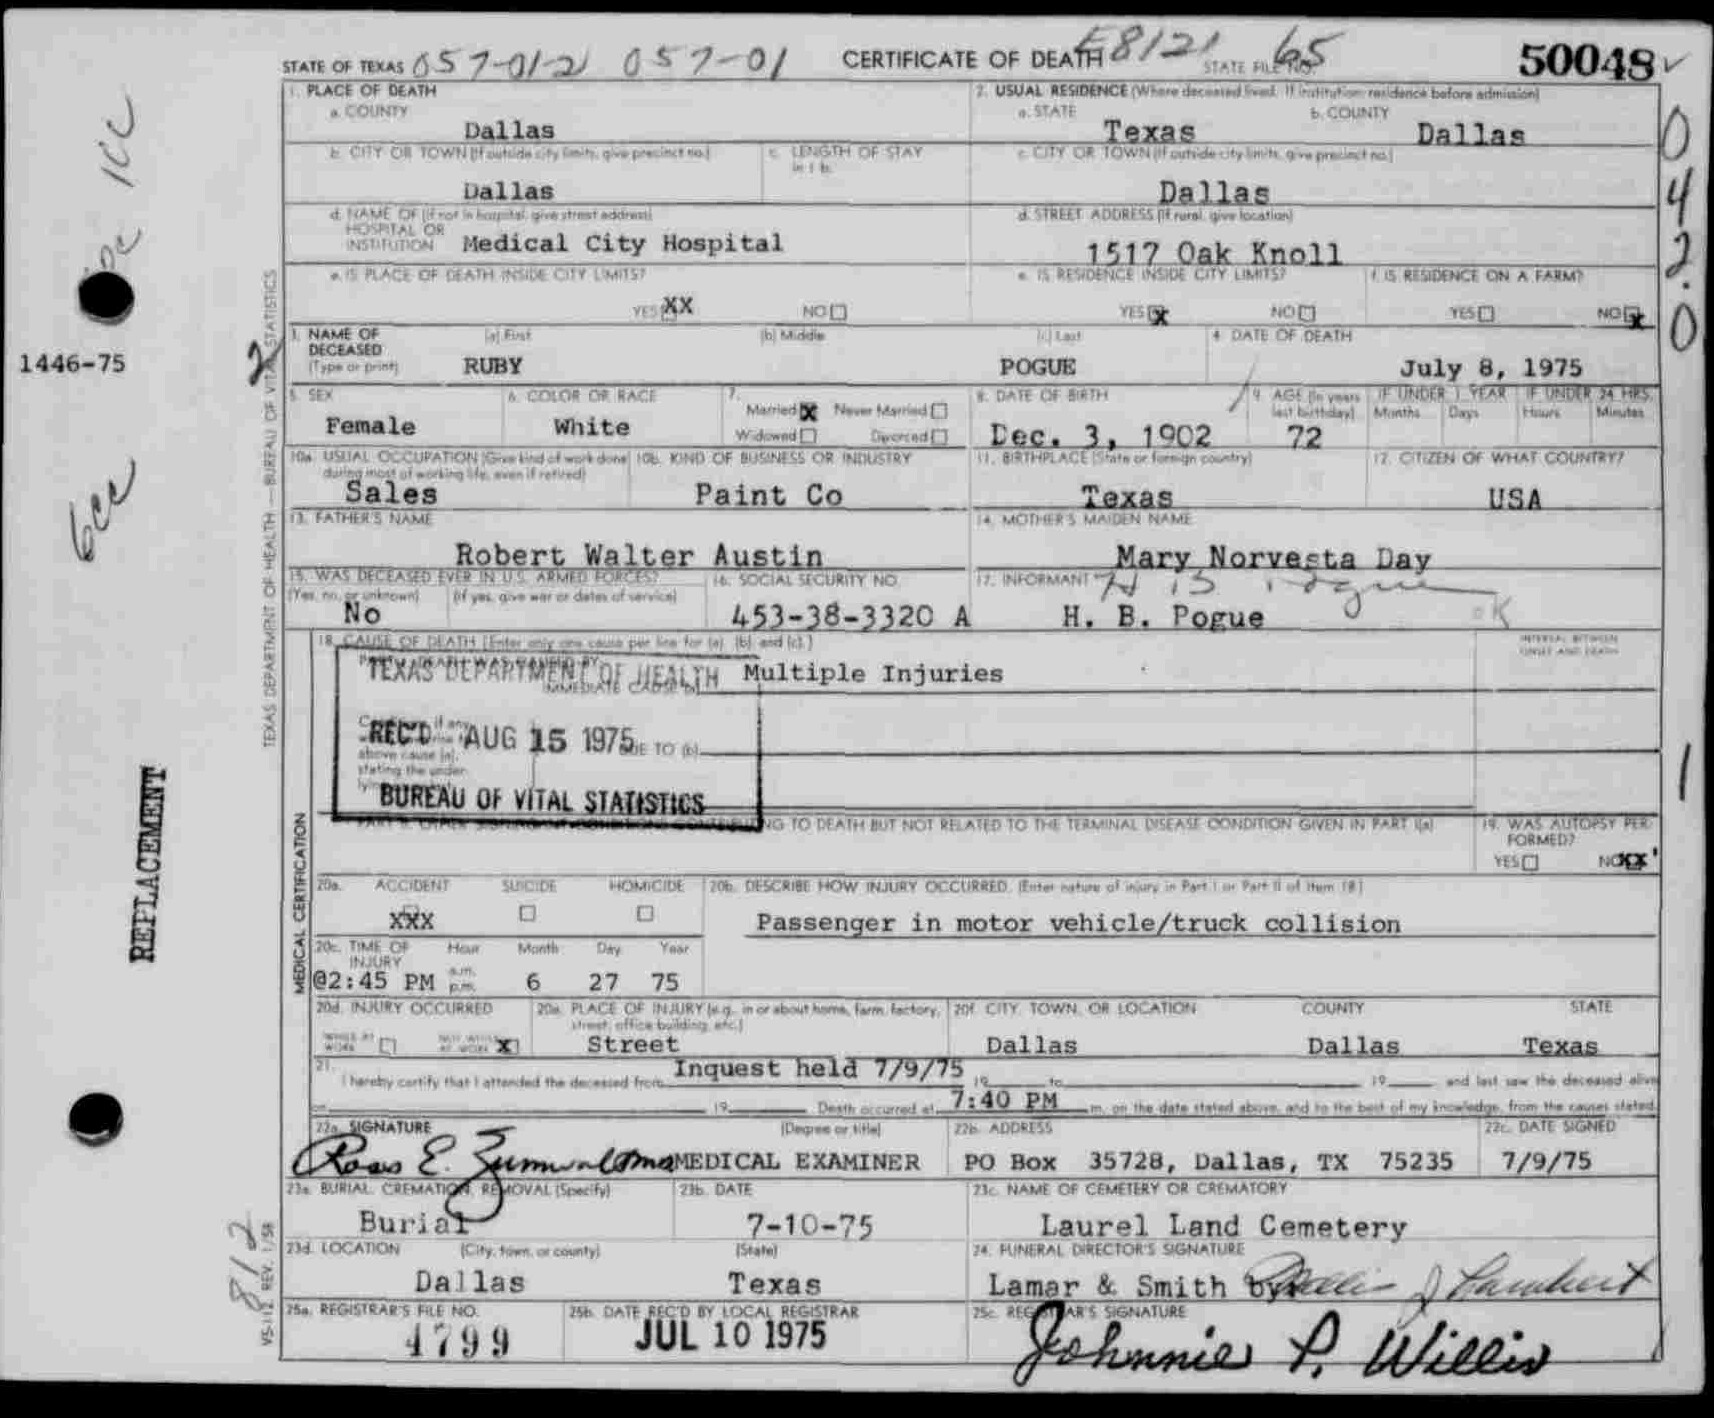 STATE OF TEXAS 057-01-2 057-01 CERTIFICATE OF DEATH 68121 STATE FILE NO. 65 50048
1. PLACE OF DEATH
a. COUNTY
Dallas
2. USUAL RESIDENCE (Where deceased lived. If institution: residence before admission)
a. STATE
Texas
b. COUNTY
Dallas
b. CITY OR TOWN (If outside city limits, give precinct no.)
Dallas
c. LENGTH OF STAY
in 1 b.
c. CITY OR TOWN (If outside city limits, give precinct no.)
Dallas
d. NAME OF (If not in hospital, give street address)
HOSPITAL OR
INSTITUTION Medical City Hospital
d. STREET ADDRESS (If rural, give location)
1517 Oak Knoll
e. IS PLACE OF DEATH INSIDE CITY LIMITS?
YES XX NO
e. IS RESIDENCE INSIDE CITY LIMITS?
YES x NO
f. IS RESIDENCE ON A FARM?
YES NO x
0
4
2.
0
1446-75
2
3. NAME OF
DECEASED
(Type or print)
(a) First
RUBY
(b) Middle
(c) Last
POGUE
4. DATE OF DEATH
July 8, 1975
5. SEX
Female
6. COLOR OR RACE
White
7.
Married X Never Married
Widowed Divorced
8. DATE OF BIRTH
Dec. 3, 1902
9. AGE (In years
last birthday)
72
IF UNDER 1 YEAR
Months Days
IF UNDER 24 HRS.
Hours Minutes
10a. USUAL OCCUPATION (Give kind of work done
during most of working life, even if retired)
Sales
10b. KIND OF BUSINESS OR INDUSTRY
Paint Co
11. BIRTHPLACE (State or foreign country)
Texas
12. CITIZEN OF WHAT COUNTRY?
USA
13. FATHER'S NAME
Robert Walter Austin
14. MOTHER'S MAIDEN NAME
Mary Norvesta Day
15. WAS DECEASED EVER IN U.S. ARMED FORCES?
(Yes, no, or unknown) (If yes, give war or dates of service)
No
16. SOCIAL SECURITY NO.
453-38-3320 A
17. INFORMANT H B Pogue
H. B. Pogue
OK
18. CAUSE OF DEATH (Enter only one cause per line for (a), (b), and (c).)
INTERVAL BETWEEN
ONSET AND DEATH
TEXAS DEPARTMENT OF HEALTH
IMMEDIATE CAUSE (a) Multiple Injuries
REC'D AUG 15 1975
DUE TO (b)
above cause (a),
stating the under-
BUREAU OF VITAL STATISTICS
PART II. OTHER SIGNIFICANT CONDITIONS CONTRIBUTING TO DEATH BUT NOT RELATED TO THE TERMINAL DISEASE CONDITION GIVEN IN PART I(a)
19. WAS AUTOPSY PER-
FORMED?
YES NO XX
1
20a. ACCIDENT SUICIDE HOMICIDE
XXX
20b. DESCRIBE HOW INJURY OCCURRED. (Enter nature of injury in Part I or Part II of Item 18.)
Passenger in motor vehicle/truck collision
20c. TIME OF
INJURY
Hour Month Day Year
@2:45 PM a.m.
p.m. 6 27 75
20d. INJURY OCCURRED
WHILE AT
WORK
NOT WHILE
AT WORK X
20e. PLACE OF INJURY (e.g., in or about home, farm, factory,
street, office building, etc.)
Street
20f. CITY, TOWN, OR LOCATION COUNTY STATE
Dallas Dallas Texas
21. Inquest held 7/9/75
I hereby certify that I attended the deceased from 19 to 19 and last saw the deceased alive
on 19 Death occurred at 7:40 PM m. on the date stated above, and to the best of my knowledge, from the causes stated.
22a. SIGNATURE (Degree or title)
Ross E. Zumwalt MD MEDICAL EXAMINER
22b. ADDRESS
PO Box 35728, Dallas, TX 75235
22c. DATE SIGNED
7/9/75
23a. BURIAL, CREMATION, REMOVAL (Specify)
Burial
23b. DATE
7-10-75
23c. NAME OF CEMETERY OR CREMATORY
Laurel Land Cemetery
23d. LOCATION (City, town, or county) (State)
Dallas Texas
24. FUNERAL DIRECTOR'S SIGNATURE
Lamar & Smith by J Lambert
25a. REGISTRAR'S FILE NO.
4799
25b. DATE REC'D BY LOCAL REGISTRAR
JUL 10 1975
25c. REGISTRAR'S SIGNATURE
Johnnie P. Willis
TEXAS DEPARTMENT OF HEALTH — BUREAU OF VITAL STATISTICS
MEDICAL CERTIFICATION
REPLACEMENT
8/12
VS-112 REV. 1/58